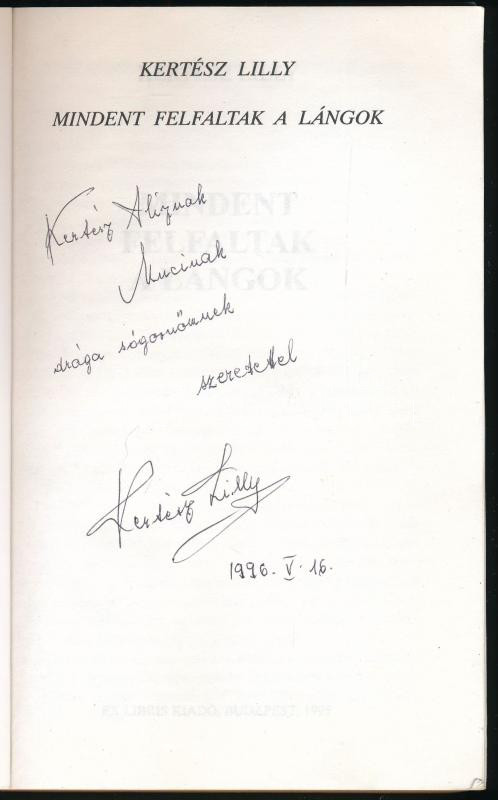 KERTÉSZ LILLY
MINDENT FELFALTAK A LÁNGOK
MINDENT
FELFALTAK
A LÁNGOK
Kertész Aliznak
Mucinak
drága sógornőmnek
szeretettel
Kertész Lilly
1996. V. 16.
EX LIBRIS KIADÓ, BUDAPEST, 1995